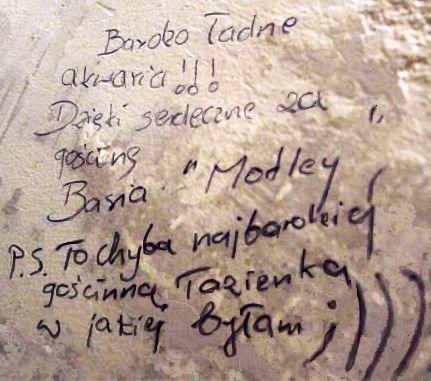 Bardzo Ładne
akwaria!!!
Dzięki serdeczne za
gościnę
Basia "Modley"
P.S. To chyba najbardziej
gościnna Łazienka
w jakiej byłam ;)))